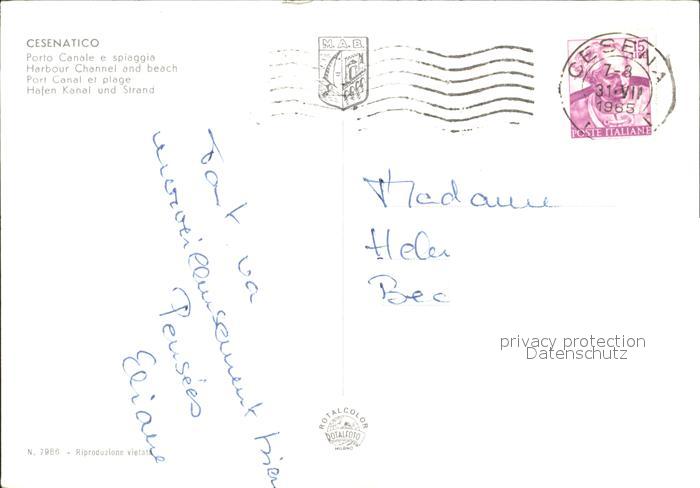 CESENATICO
Porto Canale e spiaggia
Harbour Channel and beach
Port Canal et plage
Hafen Kanal und Strand
M.A.B.
15
CESENA
7-8
31·VII
1965
POSTE ITALIANE
Tout va
merveilleusement bien
Pensées
Eliane
Madame
Helen
Bec
privacy protection
Datenschutz
ROTALCOLOR
ROTALFOTO
MILANO
N. 7986 - Riproduzione vietata